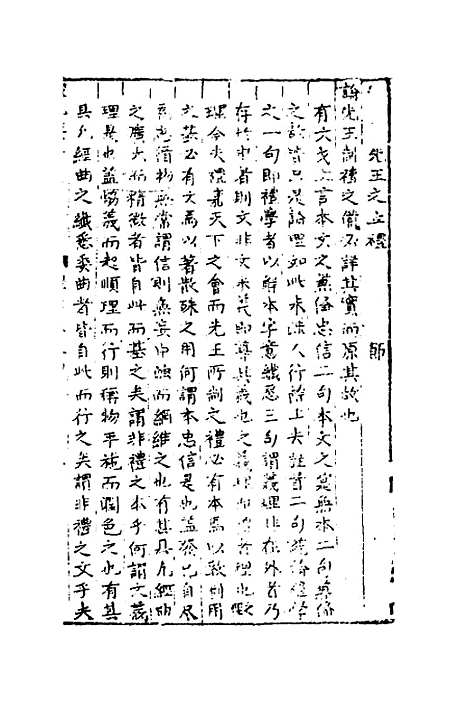 先王之立禮　師
論先王制禮之備不詳其實而原其故也
有六我上言本文之兼後忠信二句本文之實無本二句兼係
之說皆只是論理如此未涉人行除上夫註首二句統論
之一句即禮學者以解本字意纖悉三句謂義理非在外者乃
存於中者則文非文矣義即
理今夫隆嘉天下之會而先王所制之禮必有本焉以敦制用
之基必有文焉以著散殊之用何謂本忠信是也蓋發己自尽
爲忠循物無違謂信則無妄中涵而綱維之也有其具凡經曲
之廣大而精微者皆自此而基之矣謂非禮之本乎何謂文義
理是也蓋協義而起順理而行則稱物平施而潤色之也有其
具凡經曲之纖悉委曲者皆自此而行之矣謂非禮之文乎夫